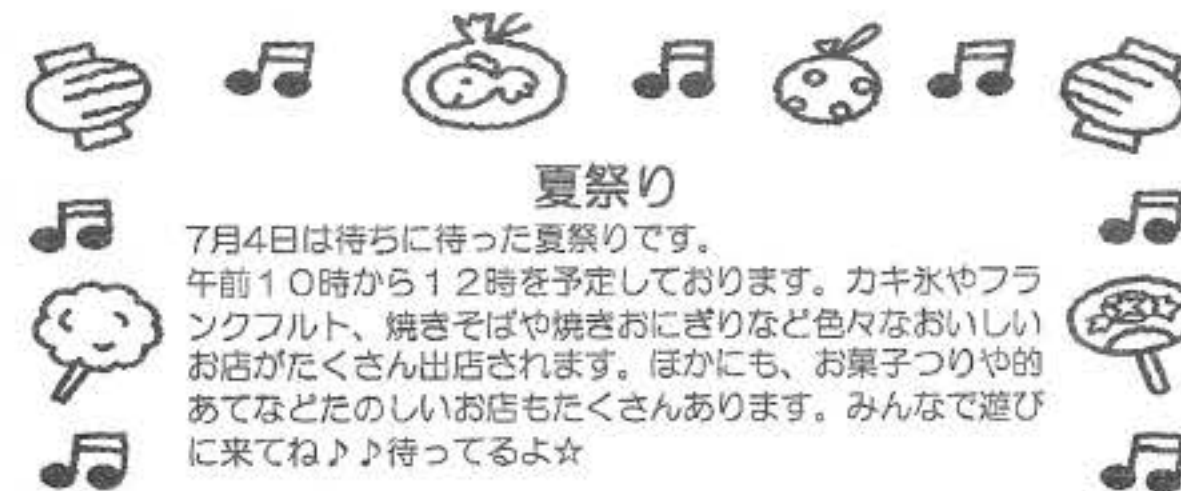 夏祭り
7月4日は待ちに待った夏祭りです。
午前１０時から１２時を予定しております。カキ氷やフラ
ンクフルト、焼きそばや焼きおにぎりなど色々なおいしい
お店がたくさん出店されます。ほかにも、お菓子つりや的
あてなどたのしいお店もたくさんあります。みんなで遊び
に来てね♪♪待ってるよ☆